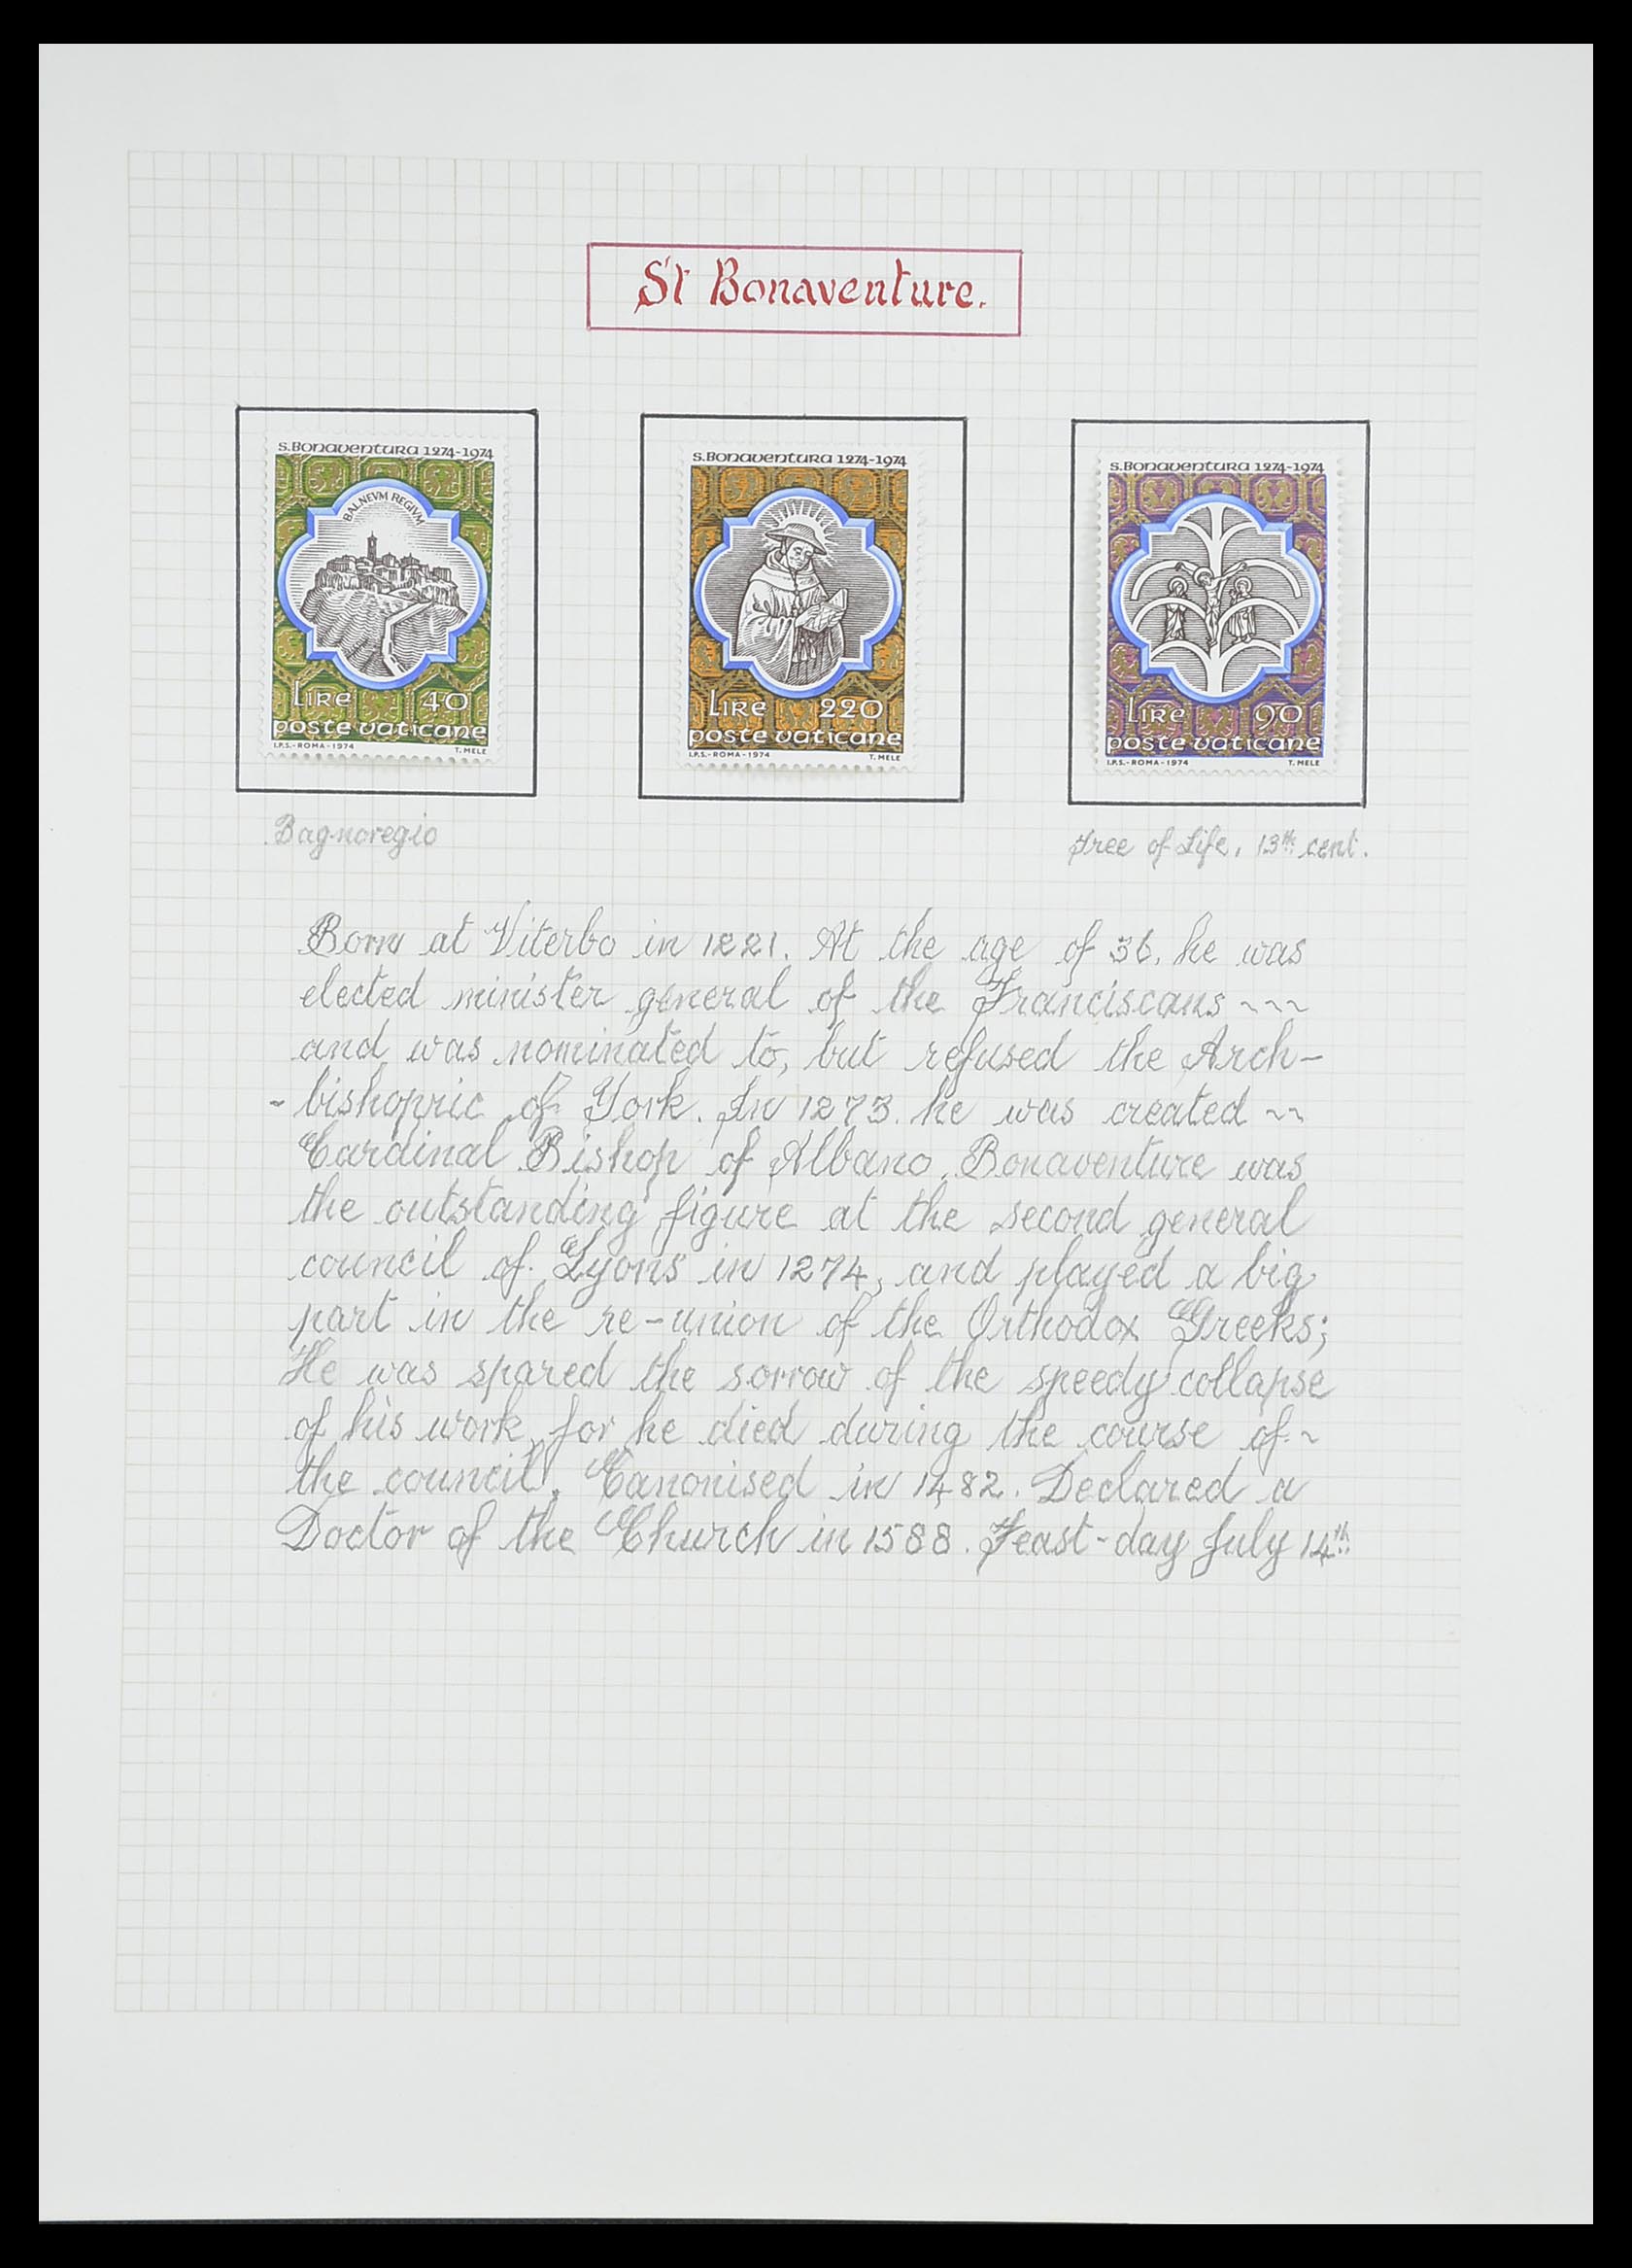 St Bonaventure.
S.BONAVENTURA 1274-1974
BALNEVM REGIVM
LIRE 40
POSTE VATICANE
I.P.S.-ROMA-1974 T. MELE
S.BONAVENTURA 1274-1974
LIRE 220
POSTE VATICANE
I.P.S.-ROMA-1974 T. MELE
S.BONAVENTURA 1274-1974
LIRE 90
POSTE VATICANE
I.P.S.-ROMA-1974 T. MELE
Bagnoregio
Tree of Life, 13th cent.
Born at Viterbo in 1221. At the age of 36, he was
elected minister general of the Franciscans ~~~
and was nominated to, but refused the Arch-
- bishopric of York. In 1273. he was created ~~
Cardinal Bishop of Albano. Bonaventure was
the outstanding figure at the second general
council of Lyons in 1274, and played a big
part in the re-union of the Orthodox Greeks;
He was spared the sorrow of the speedy collapse
of his work, for he died during the course of ~
the council. Canonised in 1482. Declared a
Doctor of the Church in 1588. Feast-day July 14th